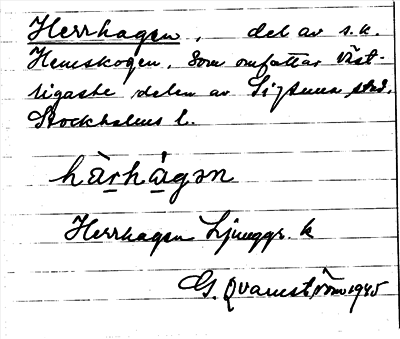 Herrhagen, del av s.k.
Hemskogen, som omfattar väst-
ligaste delen av Sigtuna stad,
Stockholms l.
hàrhàgən
Herrhagen Ljunggr. k
G. Qvarnström 1945